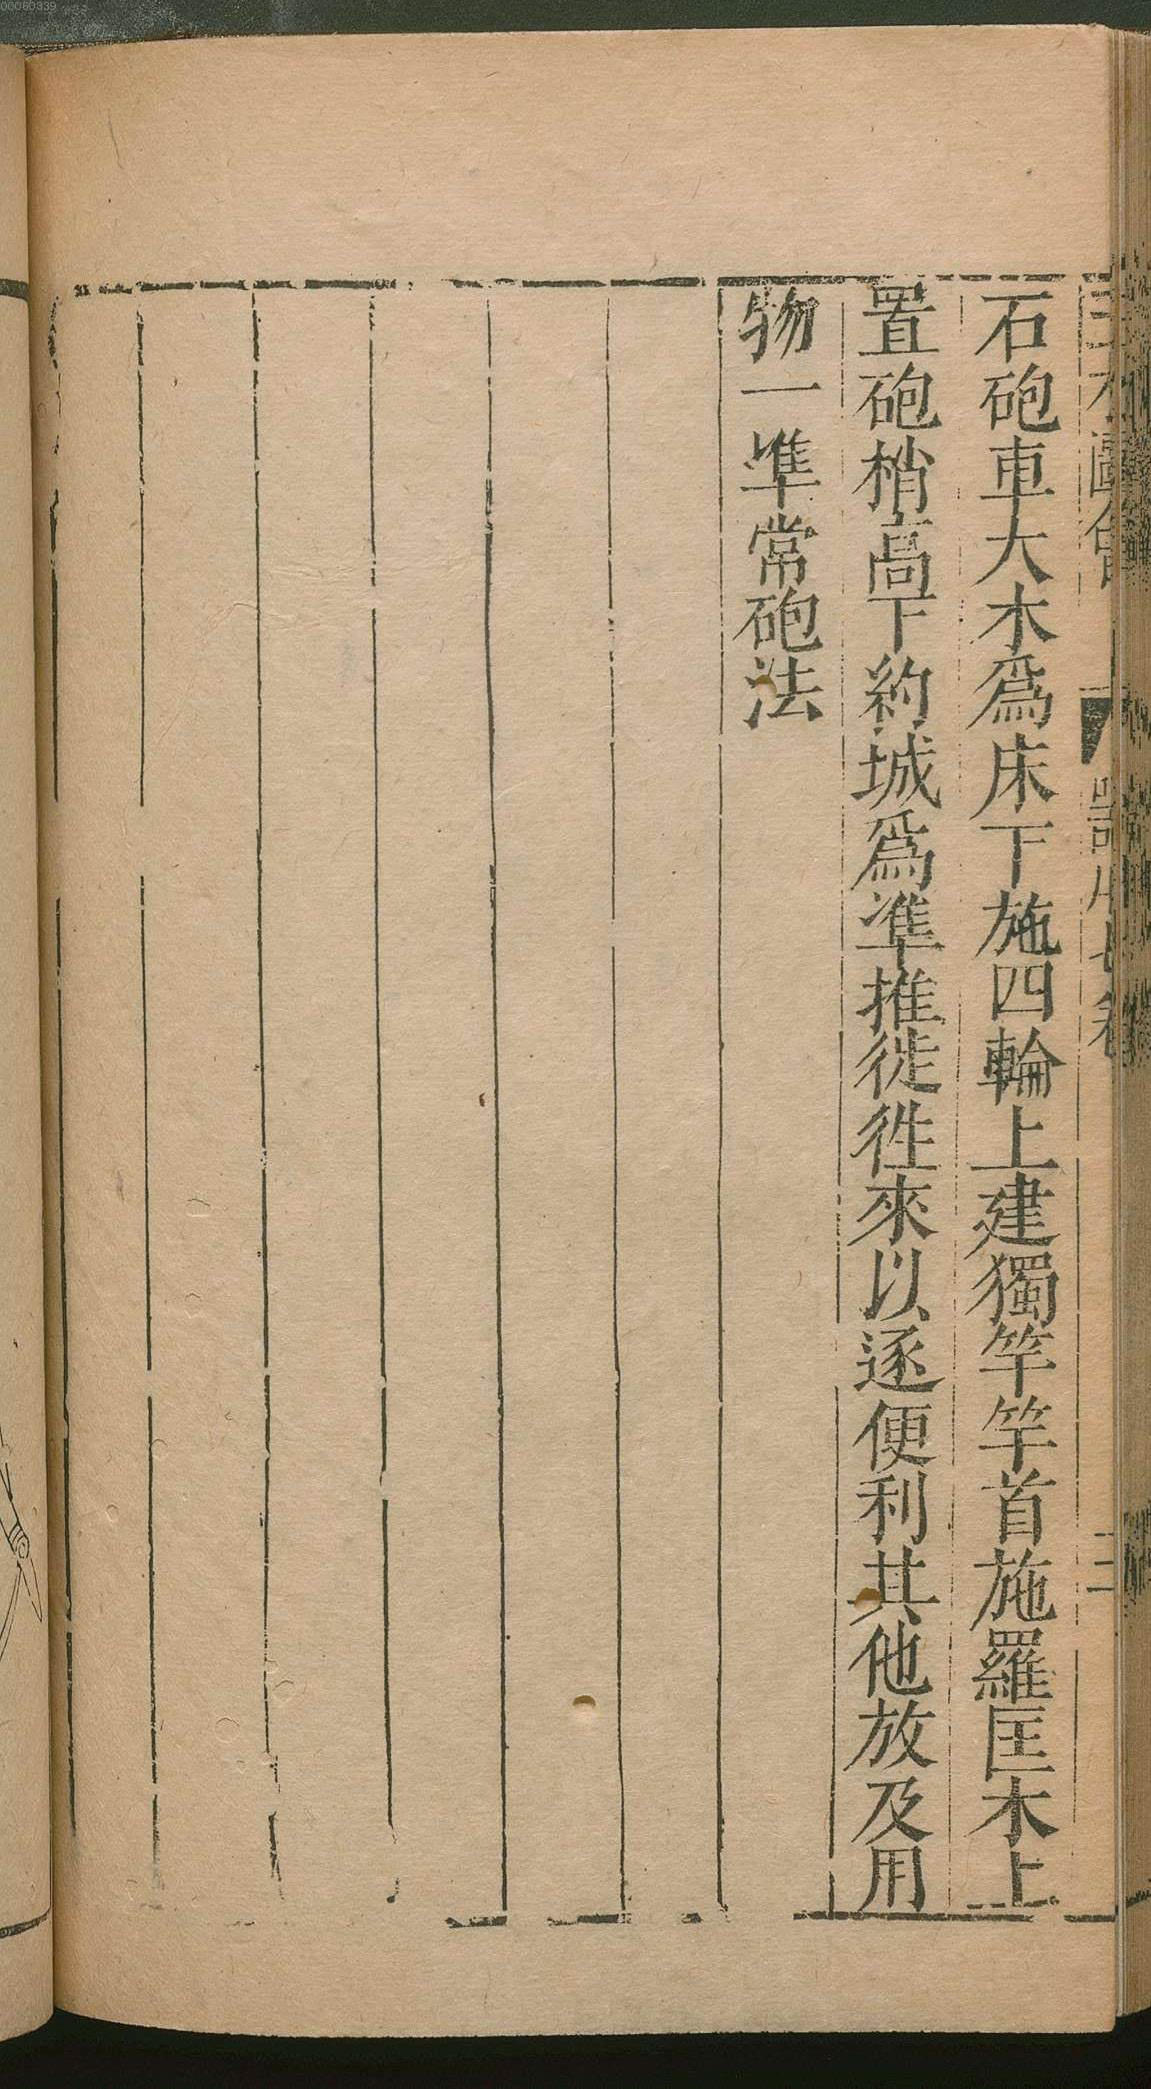 石砲車大木爲床下施四輪上建獨竿竿首施羅匡木上
置砲梢高下約城爲準推徙徃來以逐便利其他放及用
物一準常砲法
00060339